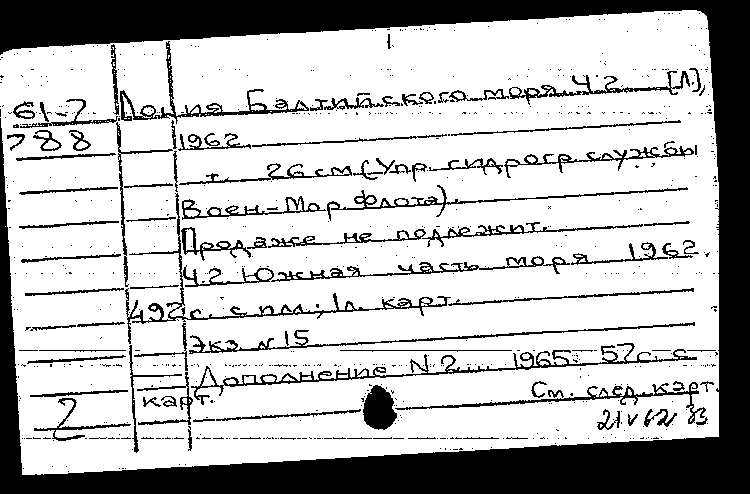 61-7 Лоция Балтийского моря. Ч.2. [Л.],
788 1962.
т. 26 см (Упр. гидрогр. службы
Воен-Мор. Флота).
Продаже не подлежит.
Ч.2. Южная часть моря 1962.
492 с. с пл.; 1л. карт.
Экз. N 15
Дополнение N 2... 1965. 57 с. с
карт. См. след. карт.
2